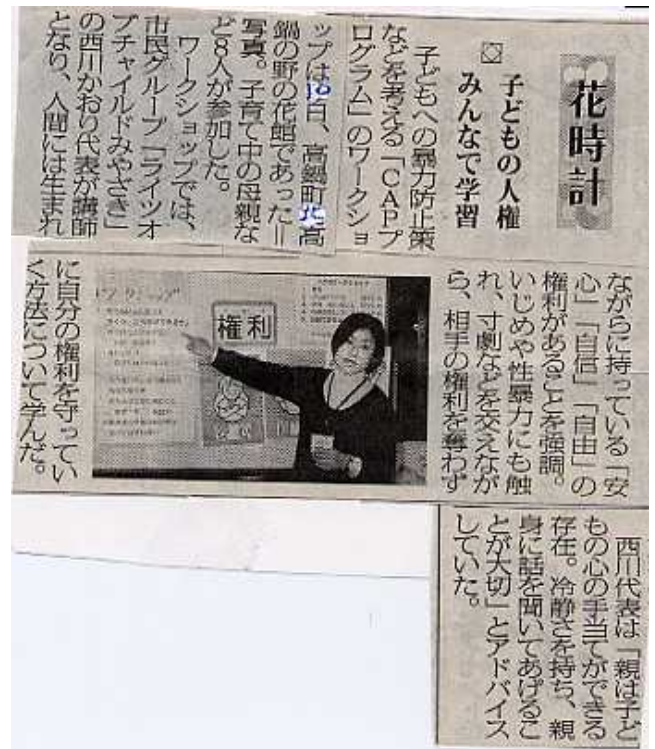 花時計
子どもの人権
みんなで学習
子どもへの暴力防止策
などを考える「CAPプ
ログラム」のワークショ
ップは、高鍋町高
鍋の野の花館であった＝
写真。子育て中の母親な
ど8人が参加した。
ワークショップでは、
市民グループ「ライツオ
ブチャイルドみやざき」
の西川かおり代表が講師
となり、人間には生まれ
ながらに持っている「安
心」「自信」「自由」の
権利があることを強調。
いじめや性暴力にも触
れ、寸劇などを交えなが
ら、相手の権利を奪わず
権利
に自分の権利を守ってい
く方法について学んだ。
西川代表は「親は子ど
もの心の手当てができる
存在。冷静さを持ち、親
身に話を聞いてあげるこ
とが大切」とアドバイス
していた。